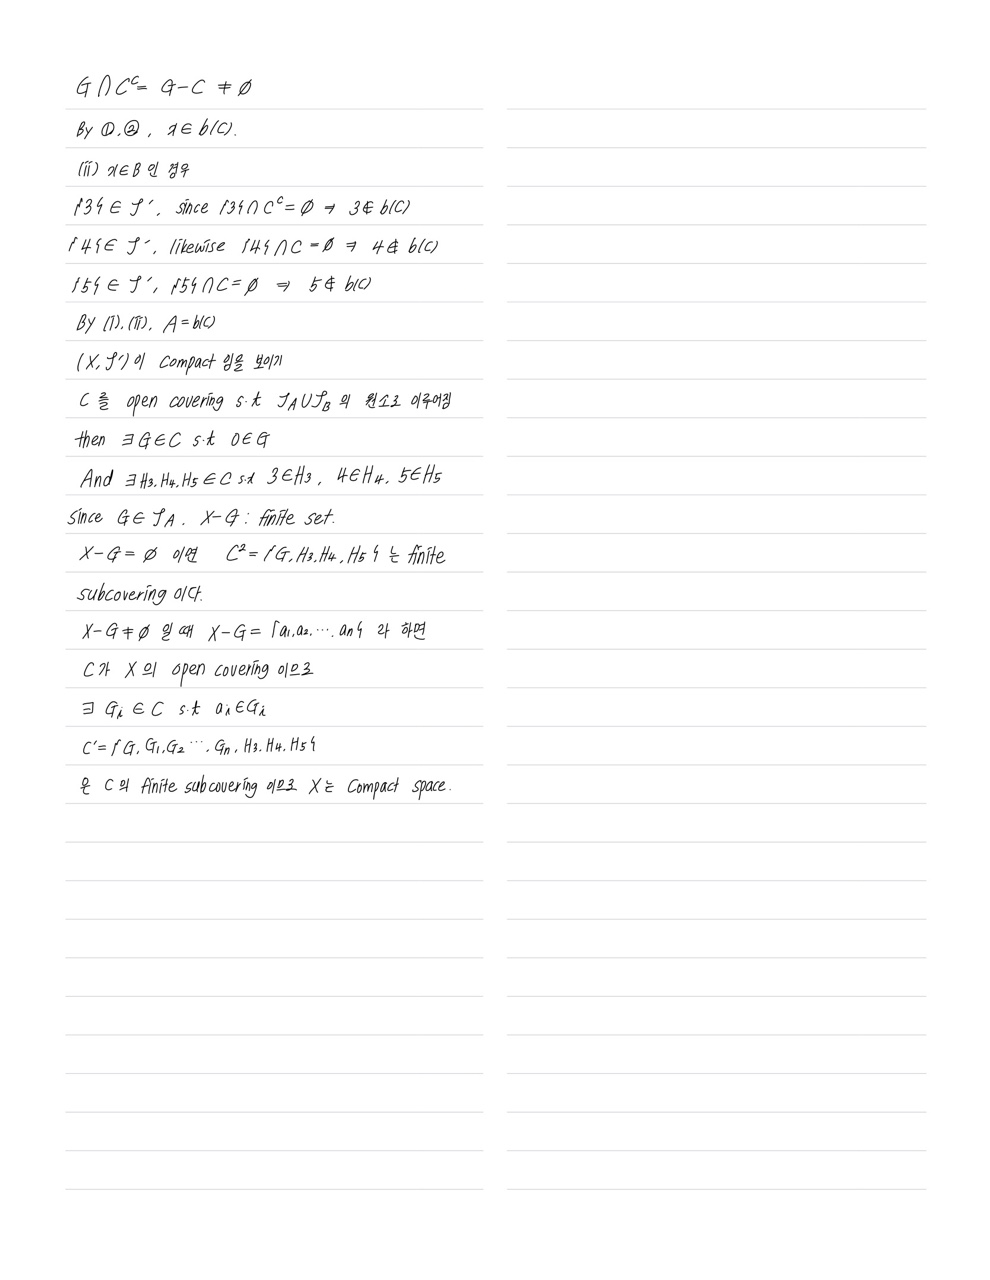 G∩Cᶜ= G−C ≠ ∅
By ①.②, x∈ b(C).
(ii) x∈B 인 경우
{3}∈ 𝒯′, since {3}∩Cᶜ=∅ ⇒ 3∉ b(C)
{4}∈ 𝒯′, likewise {4}∩C =∅ ⇒ 4∉ b(C)
{5}∈ 𝒯′, {5}∩C=∅ ⇒ 5∉ b(C)
By (i).(ii), A=b(C)
(X,𝒯′)이 Compact 임을 보이기
C 를 open covering s.t 𝒯A∪𝒯B 의 원소로 이루어짐
then ∃G∈C s.t 0∈G
And ∃H₃,H₄,H₅∈C s.t 3∈H₃, 4∈H₄, 5∈H₅
Since G∈𝒯A. X−G : finite set.
X−G=∅ 이면 C²={G,H₃,H₄,H₅} 는 finite
subcovering 이다.
X−G≠∅ 일 때 X−G={a₁,a₂,⋯,aₙ} 라 하면
C가 X의 open covering 이므로
∃ Gᵢ ∈ C s.t aᵢ∈Gᵢ
C′={G,G₁,G₂⋯,Gₙ,H₃,H₄,H₅}
은 C의 finite subcovering 이므로 X는 Compact space.